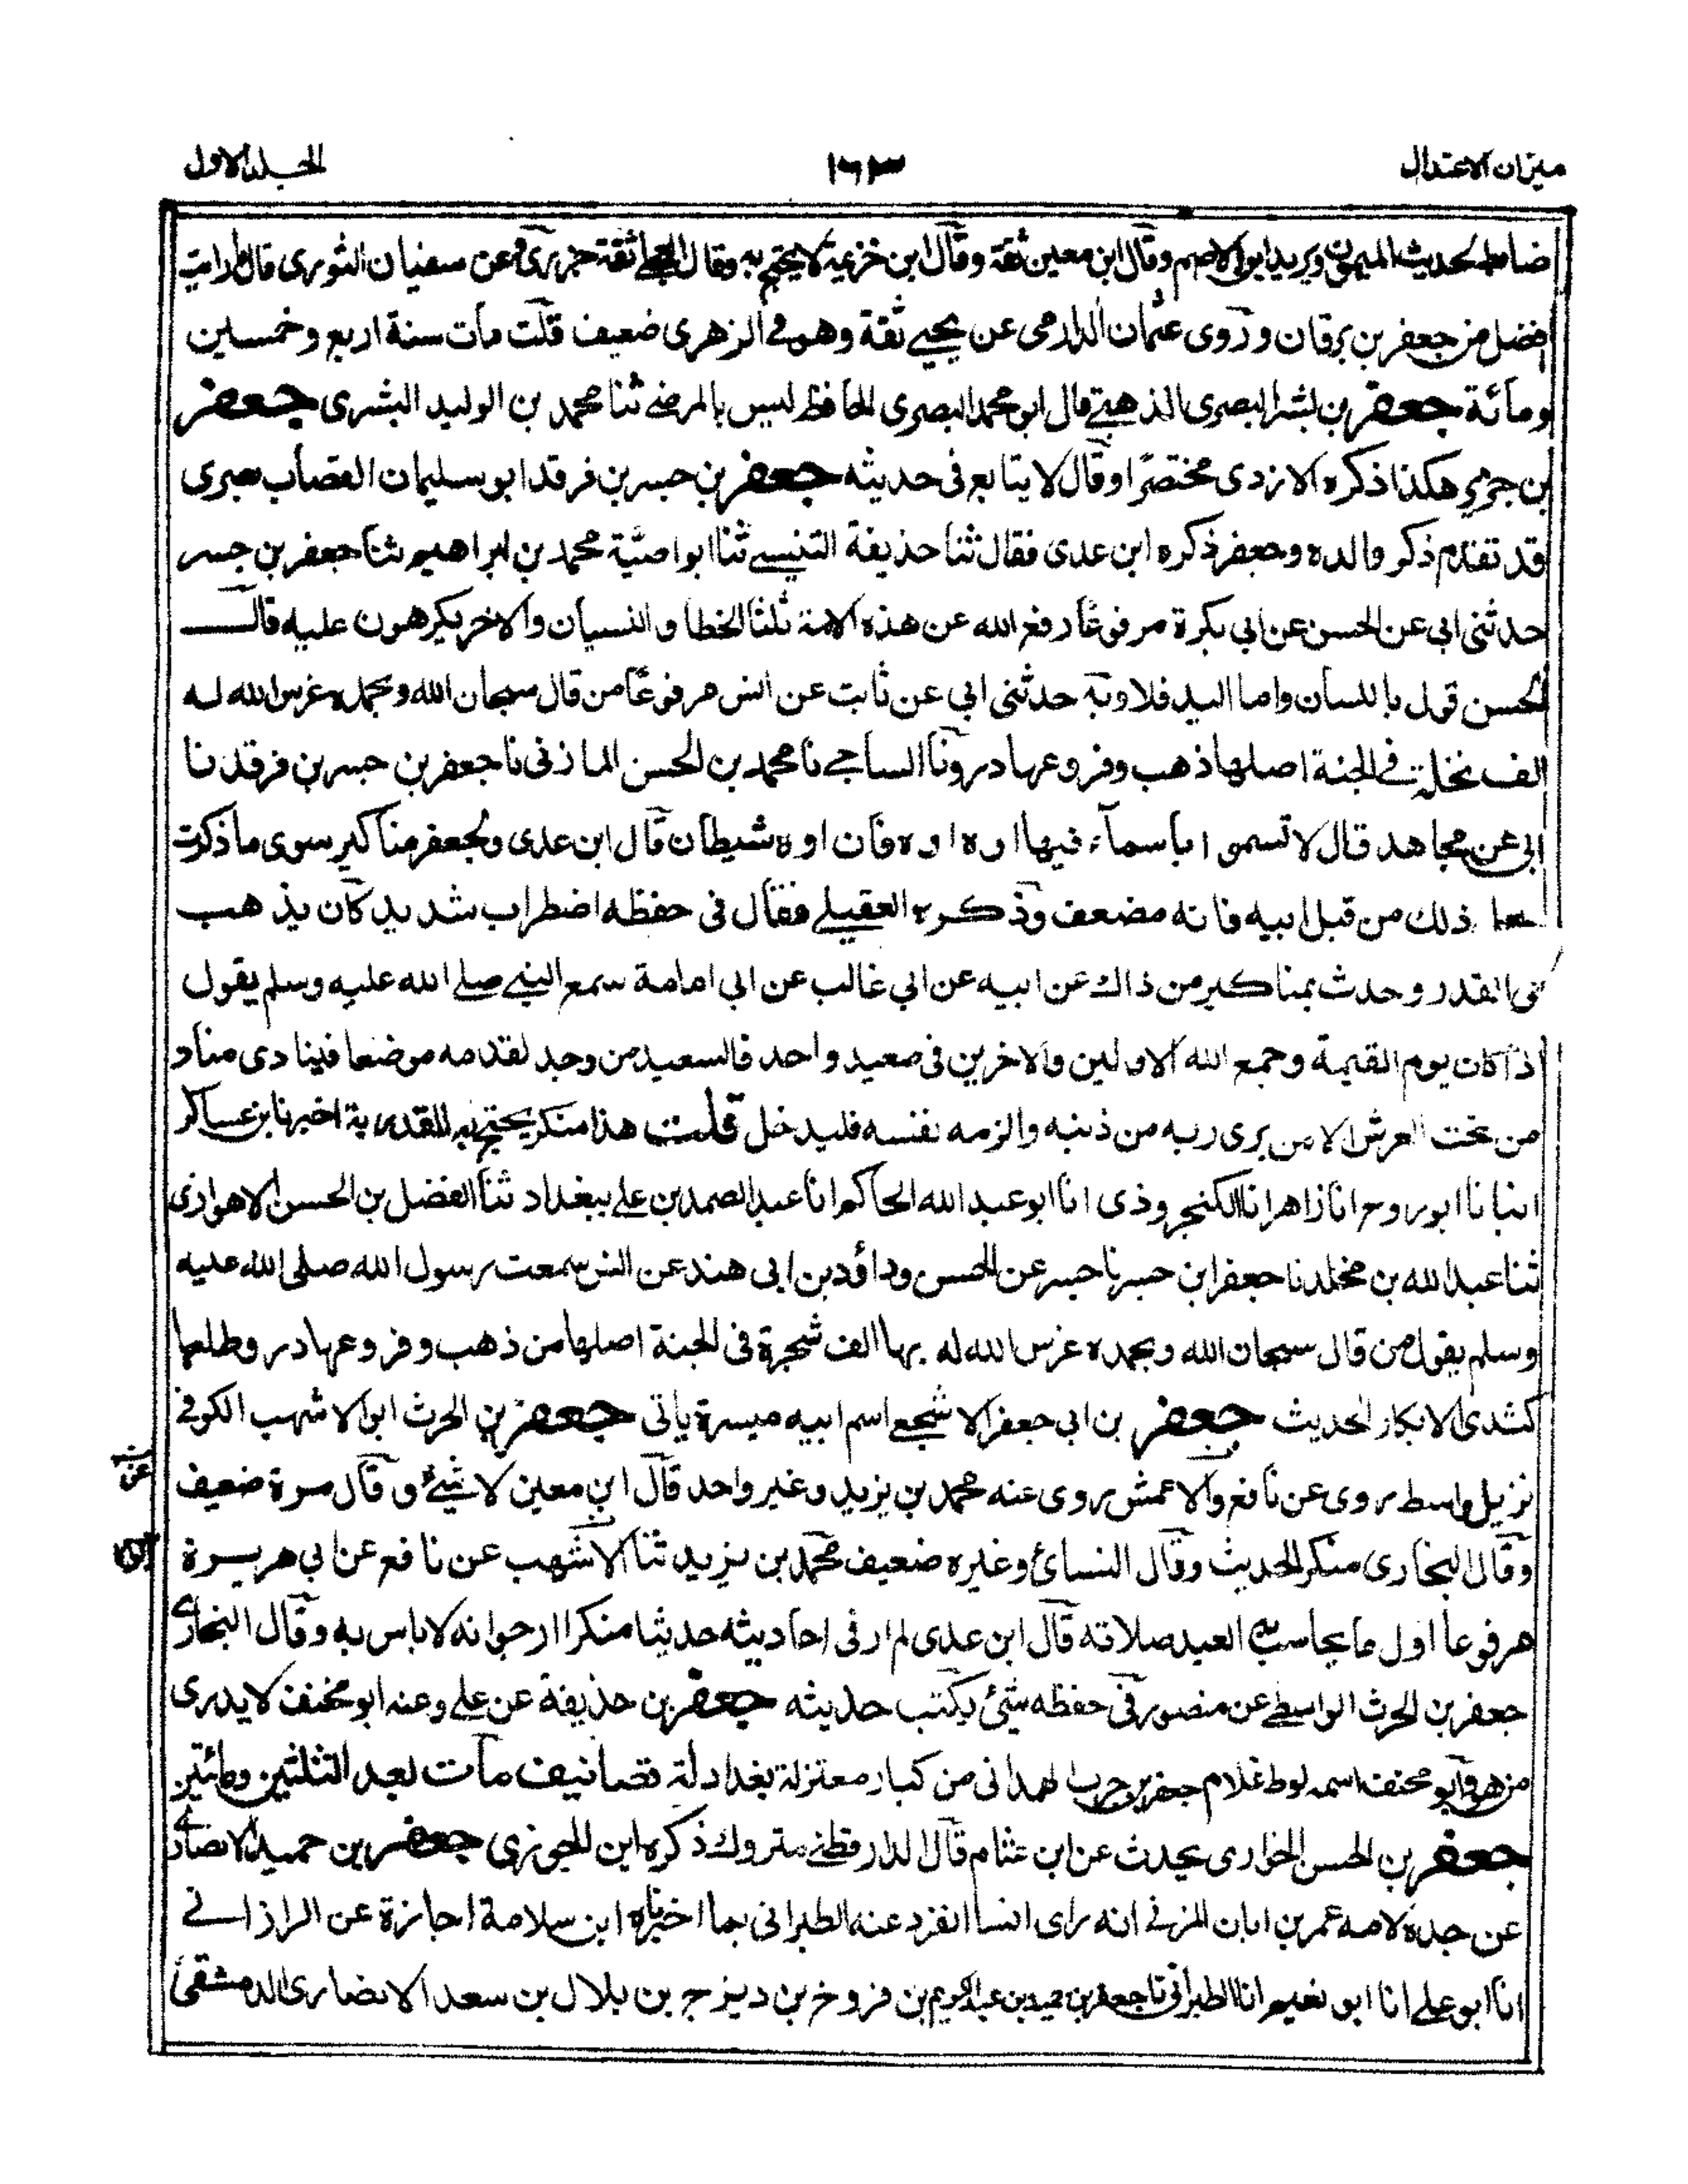 ميزان الاعتدال
١٦٣
الجلد الاول
ضابط لحديث الميمون ويزيد ابن الاصم وقال ابن معين ثقة وقال ابن خزيمة لا يحتج به وقال العجلي ثقة جزري عن سفيان الثوري قال ما رايت
افضل من جعفر بن برقان وروى عثمان الدارمي عن يحيى ثقة وهو في الزهري ضعيف قلت مات سنة اربع وخمسين
ومائة جعفر بن بشر البصري الذهبي قال ابو محمد البصري الحافظ ليس بالمرضي ثنا محمد بن الوليد البشرى جعفر
بن جرير هكذا ذكره الازدى مختصرا وقال لا يتابع فى حديثه جعفر بن جسر بن فرقد ابو سليمان القصاب بصرى
قد تقدم ذكر والده وجعفر ذكره ابن عدى فقال ثنا حذيفة التنيسي ثنا ابو امية محمد بن ابراهيم ثنا جعفر بن جسر
حدثنى ابى عن الحسن عن ابى بكرة مرفوعا رفع الله عن هذه الامة ثلثا الخطا و النسيان والامر يكرهون عليه قال
الحسن قول باللسان واما اليد فلا وبه حدثنى ابي عن ثابت عن انس مرفوعا من قال سبحان الله وبحمده غرس الله له
الف نخلة في الجنة اصلها ذهب وفروعها در ونا الساجي نا محمد بن الحسن المازنى نا جعفر بن جسر بن فرقد نا
ابى عن مجاهد قال لا تسموا باسماء فيها اوه اوه فان اوه شيطان قال ابن عدى ولجعفر مناكير سوى ما ذكرت
ذلك من قبل ابيه فانه مضعف وذكره العقيلي فقال فى حفظه اضطراب شديد كان يذهب
الى القدر وحدث بمناكير من ذاك عن ابيه عن ابي غالب عن ابي امامة سمع النبي صلى الله عليه وسلم يقول
اذا كان يوم القيمة وجمع الله الاولين والاخرين فى صعيد واحد فالسعيد من وجد لقدمه موضعا فينادى مناد
من تحت العرش الا من برى ربه من ذنبه والزمه نفسه فليدخل قلت هذا منكر يحتج به للقدرية اخبرنا بن عساكر
انبانا ابو روح انا زاهر انا الكنجروذى انا ابو عبد الله الحاكم انا عبد الصمد بن علي ببغداد ثنا الفضل بن الحسن الاهوازى
ثنا عبد الله بن مخلد نا جعفر ابن جسر نا جسر عن الحسن وداؤد بن ابى هند عن انس سمعت رسول الله صلى الله عليه
وسلم يقول من قال سبحان الله وبحمده غرس الله له بها الف شجرة فى الجنة اصلها من ذهب وفروعها در وطلعها
كثدى الابكار الحديث جعفر بن ابى جعفر الاشجعي اسم ابيه ميسرة ياتى جعفر بن الحرث ابو الاشهب الكوفي
نزيل واسط روى عن نافع والاعمش روى عنه محمد بن يزيد وغير واحد قال ابن معين لا شيئ و قال مرة ضعيف
وقال البخارى منكر الحديث وقال النسائ وغيره ضعيف محمد بن يزيد ثنا الاشهب عن نافع عن ابي هريرة
مرفوعا اول ما يحاسب به العبد صلاته قال ابن عدى لم ار فى احاديثه حديثا منكرا ارجو انه لا باس به وقال البخارى
جعفر بن الحرث الواسطي عن منصور فى حفظه شيئ يكتب حديثه جعفر بن حذيفة عن علي وعنه ابو مخنف لا يدرى
من هو وابو مخنف اسمه لوط غلام جعفر بن حرب الهمدانى من كبار معتزلة بغداد له تصانيف مات بعد الثلثين ومائتين
جعفر بن الحسن الخوارى يحدث عن ابن عثام قال الدارقطني متروك ذكره ابن الجوزى جعفر بن حميد الانصارى
عن جده لامه عمر بن ابان المزني انه راى انسا انفرد عنه الطبرانى بما اخبرناه ابن سلامة اجازة عن الرازاني
انا ابو علي انا ابو نعيم انا الطبرانى نا جعفر بن حميد بن عبد الكريم بن فروخ بن ديزج بن بلال بن سعد الانصارى الدمشقى